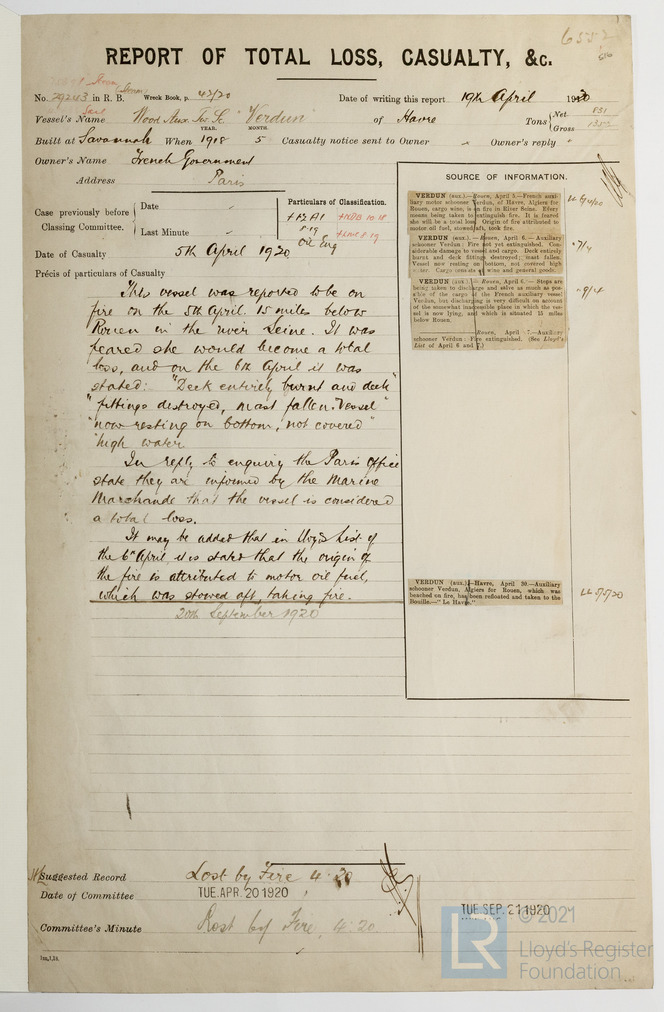 6552
REPORT OF TOTAL LOSS, CASUALTY, &c.
No. 29243 in R. B. Wreck Book, p. 42/20 Date of writing this report 19th April 1920
Vessel's Name Wood Aux. Tw. Sc. "Verdun" of Havre Tons Net 831 Gross
Built at Savannah When 1918 5 Casualty notice sent to Owner Owner's reply
YEAR. MONTH.
Owner's Name French Government
Address Paris
Case previously before Classing Committee.
Date
Last Minute
Particulars of Classification.
+12A1
8.19
Oil Eng
Date of Casualty 5th April 1920
Précis of particulars of Casualty
This vessel was reported to be on
fire on the 5th April 15 miles below
Rouen in the river Seine. It was
feared she would become a total
loss, and on the 6th April it was
stated: "Deck entirely burnt and deck"
"fittings destroyed, mast fallen. Vessel"
"now resting on bottom, not covered"
"high water
In reply to enquiry the Paris Office
state they are informed by the Marine
Marchande that the vessel is considered
a total loss.
It may be added that in Lloyds List of
the 6th April it is stated that the origin of
the fire is attributed to motor oil fuel,
which was stowed aft, taking fire.
20th September 1920
SOURCE OF INFORMATION.
VERDUN (aux.).—Rouen, April 5.—French auxi-
liary motor schooner Verdun, of Havre, Algiers for
Rouen, cargo wine, is on fire in River Seine. Effort
means being taken to extinguish fire. It is feared
she will be a total loss. Origin of fire attributed to
motor oil fuel, stowed aft, took fire.
VERDUN (aux.).—Rouen, April 6.—Auxiliary
schooner Verdun: Fire not yet extinguished. Con-
siderable damage to vessel and cargo. Deck entirely
burnt and deck fittings destroyed; mast fallen.
Vessel now resting on bottom, not covered high
water. Cargo consists of wine and general goods.
7/4
VERDUN (aux.).—Rouen, April 6.—Steps are
being taken to discharge and salve as much as pos-
sible of the cargo of the French auxiliary vessel
Verdun, but discharging is very difficult on account
of the somewhat inaccessible place in which the ves-
sel is now lying, and which is situated 15 miles
below Rouen.
9/4
Rouen, April 7.—Auxiliary
schooner Verdun: Fire extinguished. (See Lloyd's
List of April 6 and 7.)
VERDUN (aux.).—Havre, April 30.—Auxiliary
schooner Verdun, Algiers for Rouen, which was
beached on fire, has been refloated and taken to the
Bouille.—"Le Havre."
LL 5/5/20
Suggested Record Lost by Fire 4.20
Date of Committee TUE. APR. 20 1920
TUE. SEP. 21 1920
Committee's Minute Lost by Fire, 4.20
© 2021
LR
Lloyd's Register
Foundation